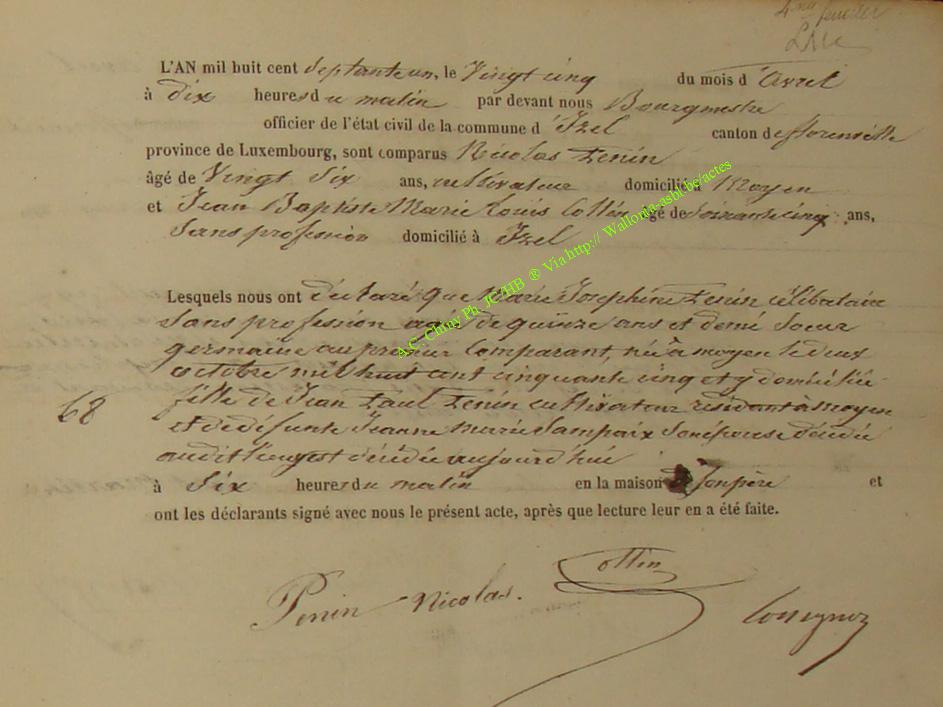 4me feuillet
L'AN mil huit cent septante un, le Vingt cinq du mois d'Avril
à dix heures du matin par devant nous Bourgmestre
officier de l'état civil de la commune d'Izel canton de florenville
province de Luxembourg, sont comparus Nicolas Penin
âgé de Vingt Six ans, cultivateur domicilié à Moyen
et Jean Baptiste Marie Louis Collin âgé de Soixante cinq ans,
Sans profession domicilié à Izel
Lesquels nous ont déclaré que Marie Josephine Penin célibataire
sans profession agée de quinze ans et demi Soeur
germaine au premier Comparant, née à moyen le deux
octobre mil huit cent cinquante cinq et y domiciliée
fille de Jean Paul Penin cultivateur résidant à Moyen
et de défunte Jeanne Marie Lampaix Son épouse décédée
audit lieu, est décédée aujourd'hui
68
à Six heures du matin en la maison de Son père et
ont les déclarants signé avec nous le présent acte, après que lecture leur en a été faite.
Penin Nicolas. Collin
A.C. Chiny Ph. JC/HB ® Via http:// Wallonia-asbl.be/actes